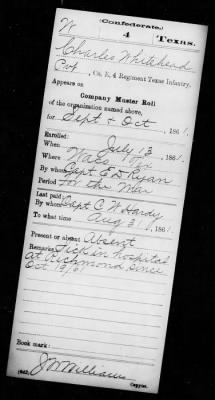 (Confederate.)
W 4 Texas.
Charlie Whitehead
Co. E, 4 Regiment Texas Infantry.
Appears on
Company Muster Roll
of the organization named above,
for Sept & Oct, 1861.
Enlisted:
When July 13, 1861.
Where Waco
By whom Capt E D Ryan
Period for the War
Last paid:
By whom Capt C W Hardy
To what time Aug 31, 1861.
Present or absent Absent
Remarks: Sick in hospital
at Richmond since
Oct 19/61
Book mark:
(642) J W Williams
Copyist.